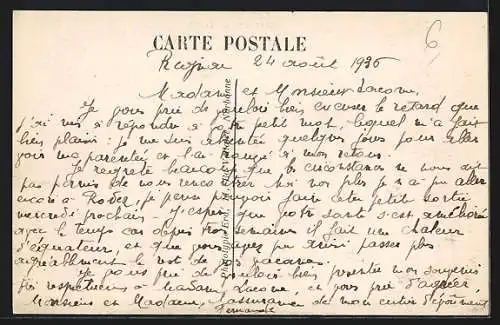 CARTE POSTALE
6
24 août 1936
Madame et Monsieur Lacome,
Je vous prie de vouloir bien excuser le retard que
j'ai mis à répondre à votre petit mot, lequel m'a fait
bien plaisir : je me suis absentée quelques jours pour aller
voir ma parenté et l'ai trouvé à mon retour.
Je regrette beaucoup que les circonstances ne nous aient
pas permis de nous rencontrer moi non plus je n'ai pu aller
encore à Rodez, je pense pouvoir faire cette petite sortie
mercredi prochain. J'espère que votre santé s'est améliorée
avec le temps car depuis trois semaines il fait une chaleur
d'équateur, et que vous avez pu ainsi passer plus
agréablement le reste de vos vacances.
Je vous prie de vouloir bien présenter mon souvenir
respectueux à Madame Lacome, et vous prie d'agréer,
Monsieur et Madame, l'assurance de mon entier dévouement
Fernande
Narbonne